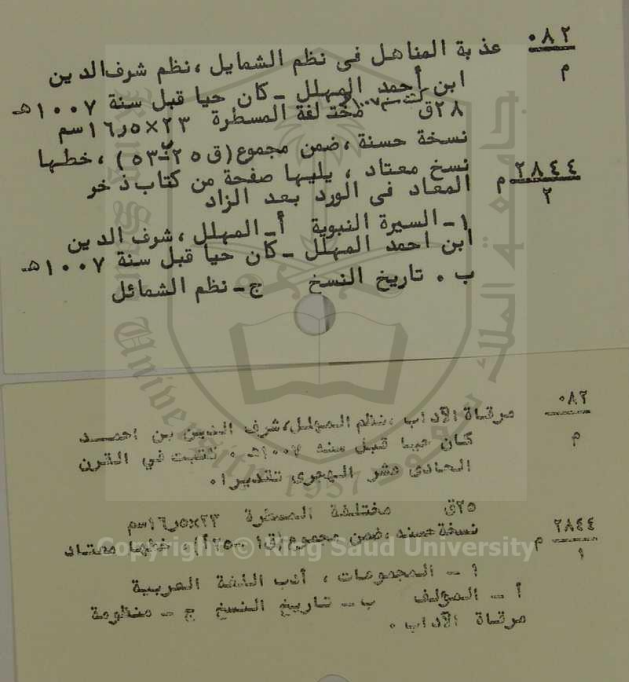 ٠٨٢
م
عذبة المناهل فى نظم الشمايل ،نظم شرف الدين
ابن أحمد المهلل ـ كان حيا قبل سنة ١٠٠٧هـ
٢٨ق مختلفة المسطرة ٢٣×١٦٫٥سم
٢٨٤٤ م
٢
نسخة حسنة ،ضمن مجموع (ق٢٥ب-٥٣) ،خطها
نسخ معتاد ، يليها صفحة من كتاب ذخر
المعاد فى الورد بعد الزاد
١ـ السيرة النبوية أـ المهلل ،شرف الدين
ابن احمد المهلل ـ كان حيا قبل سنة ١٠٠٧هـ
ب . تاريخ النسخ ج ـ نظم الشمائل
٠٨٢
م
مرقاة الآداب ،نظم المهلل،شرف الدين بن احمد
كان حيا قبل سنة ١٠٠٧هـ . كتبت في القرن
الحادى عشر الهجرى تقديرا .
٢٥ق مختلفة المسطرة ٢٣×١٦٫٥سم
٢٨٤٤ م
١
نسخة حسنه ،ضمن مجموع (ق١ب-٢٥أ)، خطها معتاد
١ ـ المجموعات ، أدب اللغة العربية
أ ـ المؤلف ب ـ تاريخ النسخ ج ـ منظومة
مرقاة الآداب .
جامعة الملك سعود
King Saud University
1957
Copyright © King Saud University